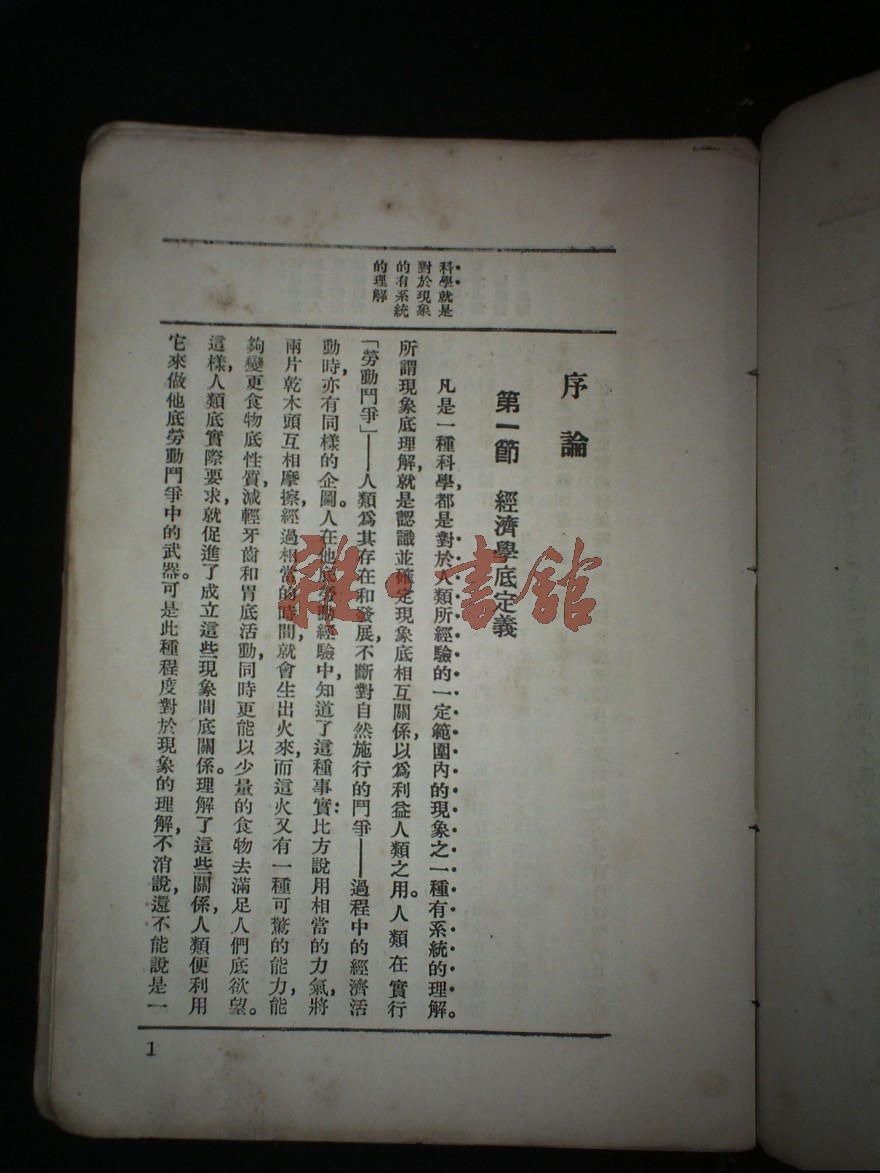 科學就是
對於現象
的有系統
的理解
序論
第一節 經濟學底定義
凡是一種科學，都是對於人類所經驗的一定範圍內的現象之一種有系統的理解。
所謂現象底理解，就是認識並確定現象底相互關係，以爲利益人類之用。人類在實行
「勞動鬥爭」——人類爲其存在和發展，不斷對自然施行的鬥爭——過程中的經濟活
動時，亦有同樣的企圖。人在他底勞動經驗中，知道了這種事實：比方說用相當的力氣，將
兩片乾木頭互相摩擦，經過相當的時間，就會生出火來，而這火又有一種可驚的能力，能
夠變更食物底性質，減輕牙齒和胃底活動，同時更能以少量的食物去滿足人們底欲望。
這樣，人類底實際要求，就促進了成立這些現象間底關係。理解了這些關係，人類便利用
它來做他底勞動鬥爭中的武器。可是此種程度對於現象的理解，不消說，還不能說是一
1
雜·書館